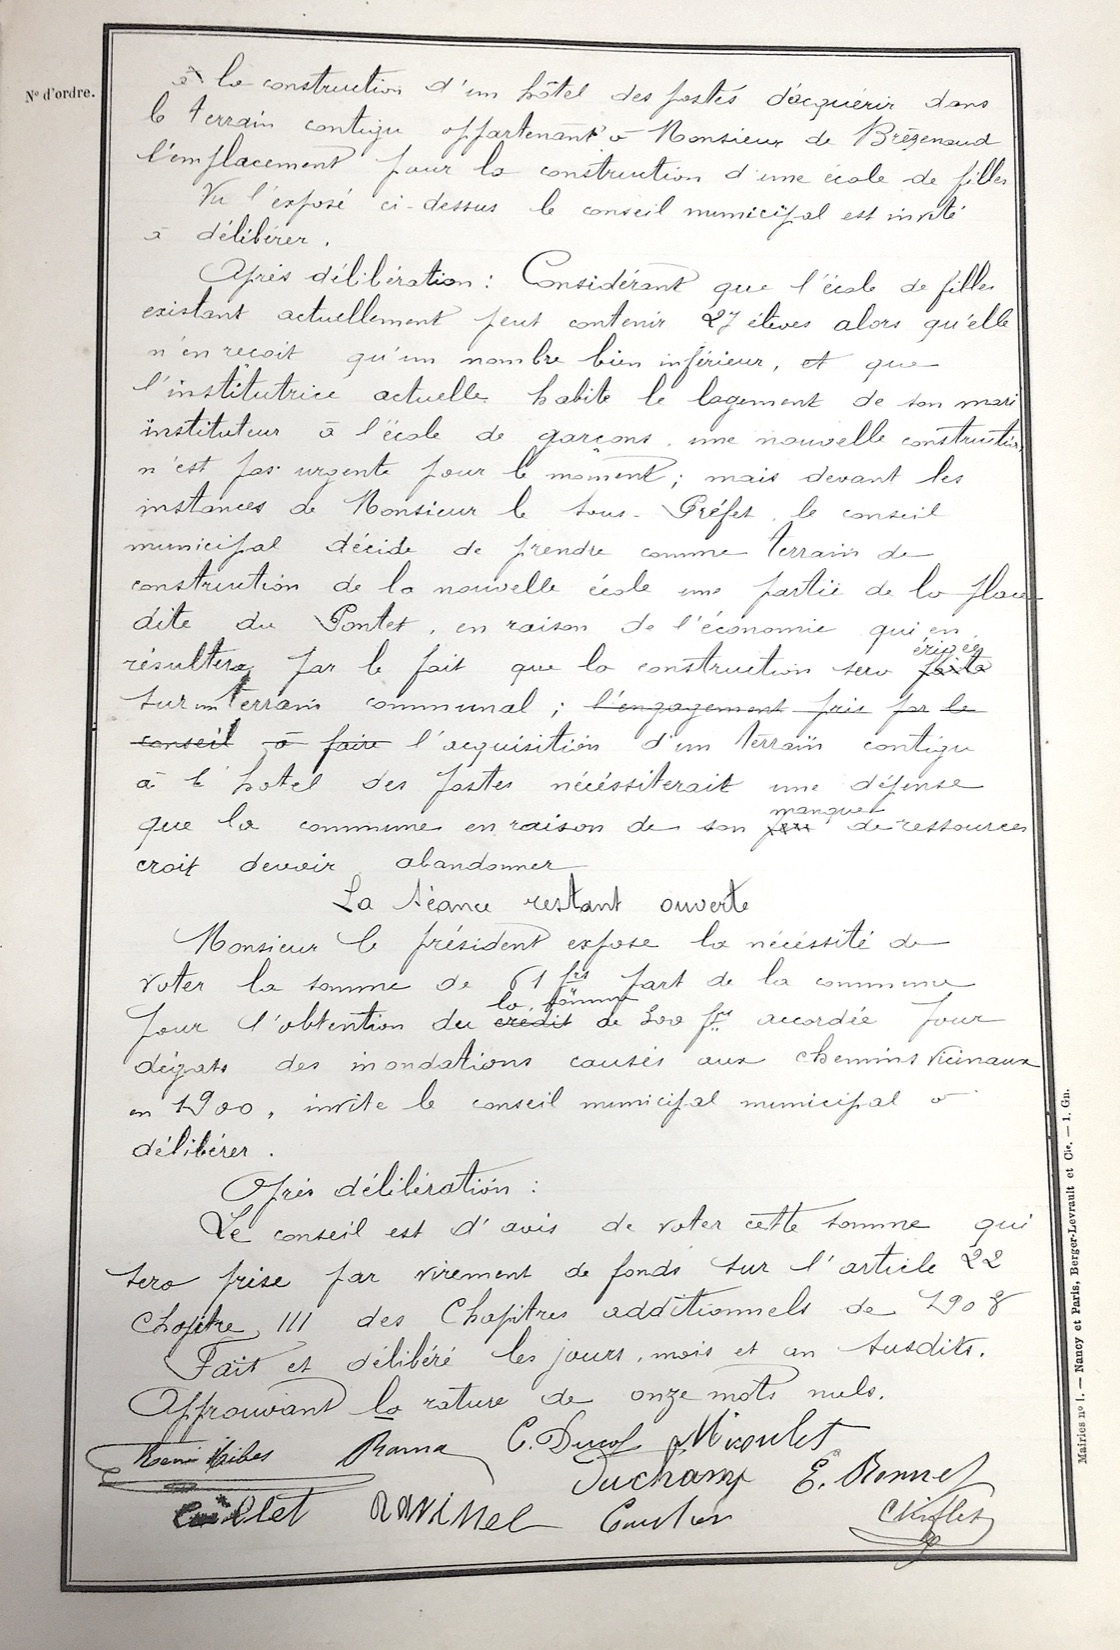 N° d'ordre.
à la construction d'un hôtel des postes d'acquérir dans
le terrain contigu appartenant à Monsieur de Brézenaud
l'emplacement pour la construction d'une école de filles
Vu l'exposé ci-dessus le conseil municipal est invité
à délibérer.
Après délibération : Considérant que l'école de filles
existant actuellement peut contenir 27 élèves alors qu'elle
n'en reçoit qu'un nombre bien inférieur, et que
l'institutrice actuelle habite le logement de son mari
instituteur à l'école de garçons, une nouvelle construction
n'est pas urgente pour le moment ; mais devant les
instances de Monsieur le Sous-Préfet, le conseil
municipal décide de prendre comme terrain de
construction de la nouvelle école une partie de la place
dite du Pontet, en raison de l'économie qui en
érigée
résultera par le fait que la construction sera faite
sur un terrain communal ; l'engagement pris par le
conseil à faire l'acquisition d'un terrain contigu
à l'hotel des postes nécéssiterait une dépense
manque
que la commune en raison de son peu de ressources
croit devoir abandonner
La séance restant ouverte
Monsieur le président expose la nécéssité de
voter la somme de 61 frs part de la commune
la somme
pour l'obtention du crédit de 300 frs accordée pour
dégats des inondations causés aux chemins vicinaux
en 1900, invite le conseil municipal municipal à
délibérer.
Après délibération :
Le conseil est d'avis de voter cette somme qui
sera prise par virement de fonds sur l'article 22
Chapitre III des Chapitres additionnels de 1908
Fait et délibéré les jours, mois et an susdits.
Approuvant la rature de onze mots nuls.
Henri Ribes Rama C. Ducol Mivoulet
Duchamp E. Bonnet
Ravinel Coustier Chiflet
Mairies n° 1. — Nancy et Paris, Berger-Levrault et Cie. — 1. Gn.